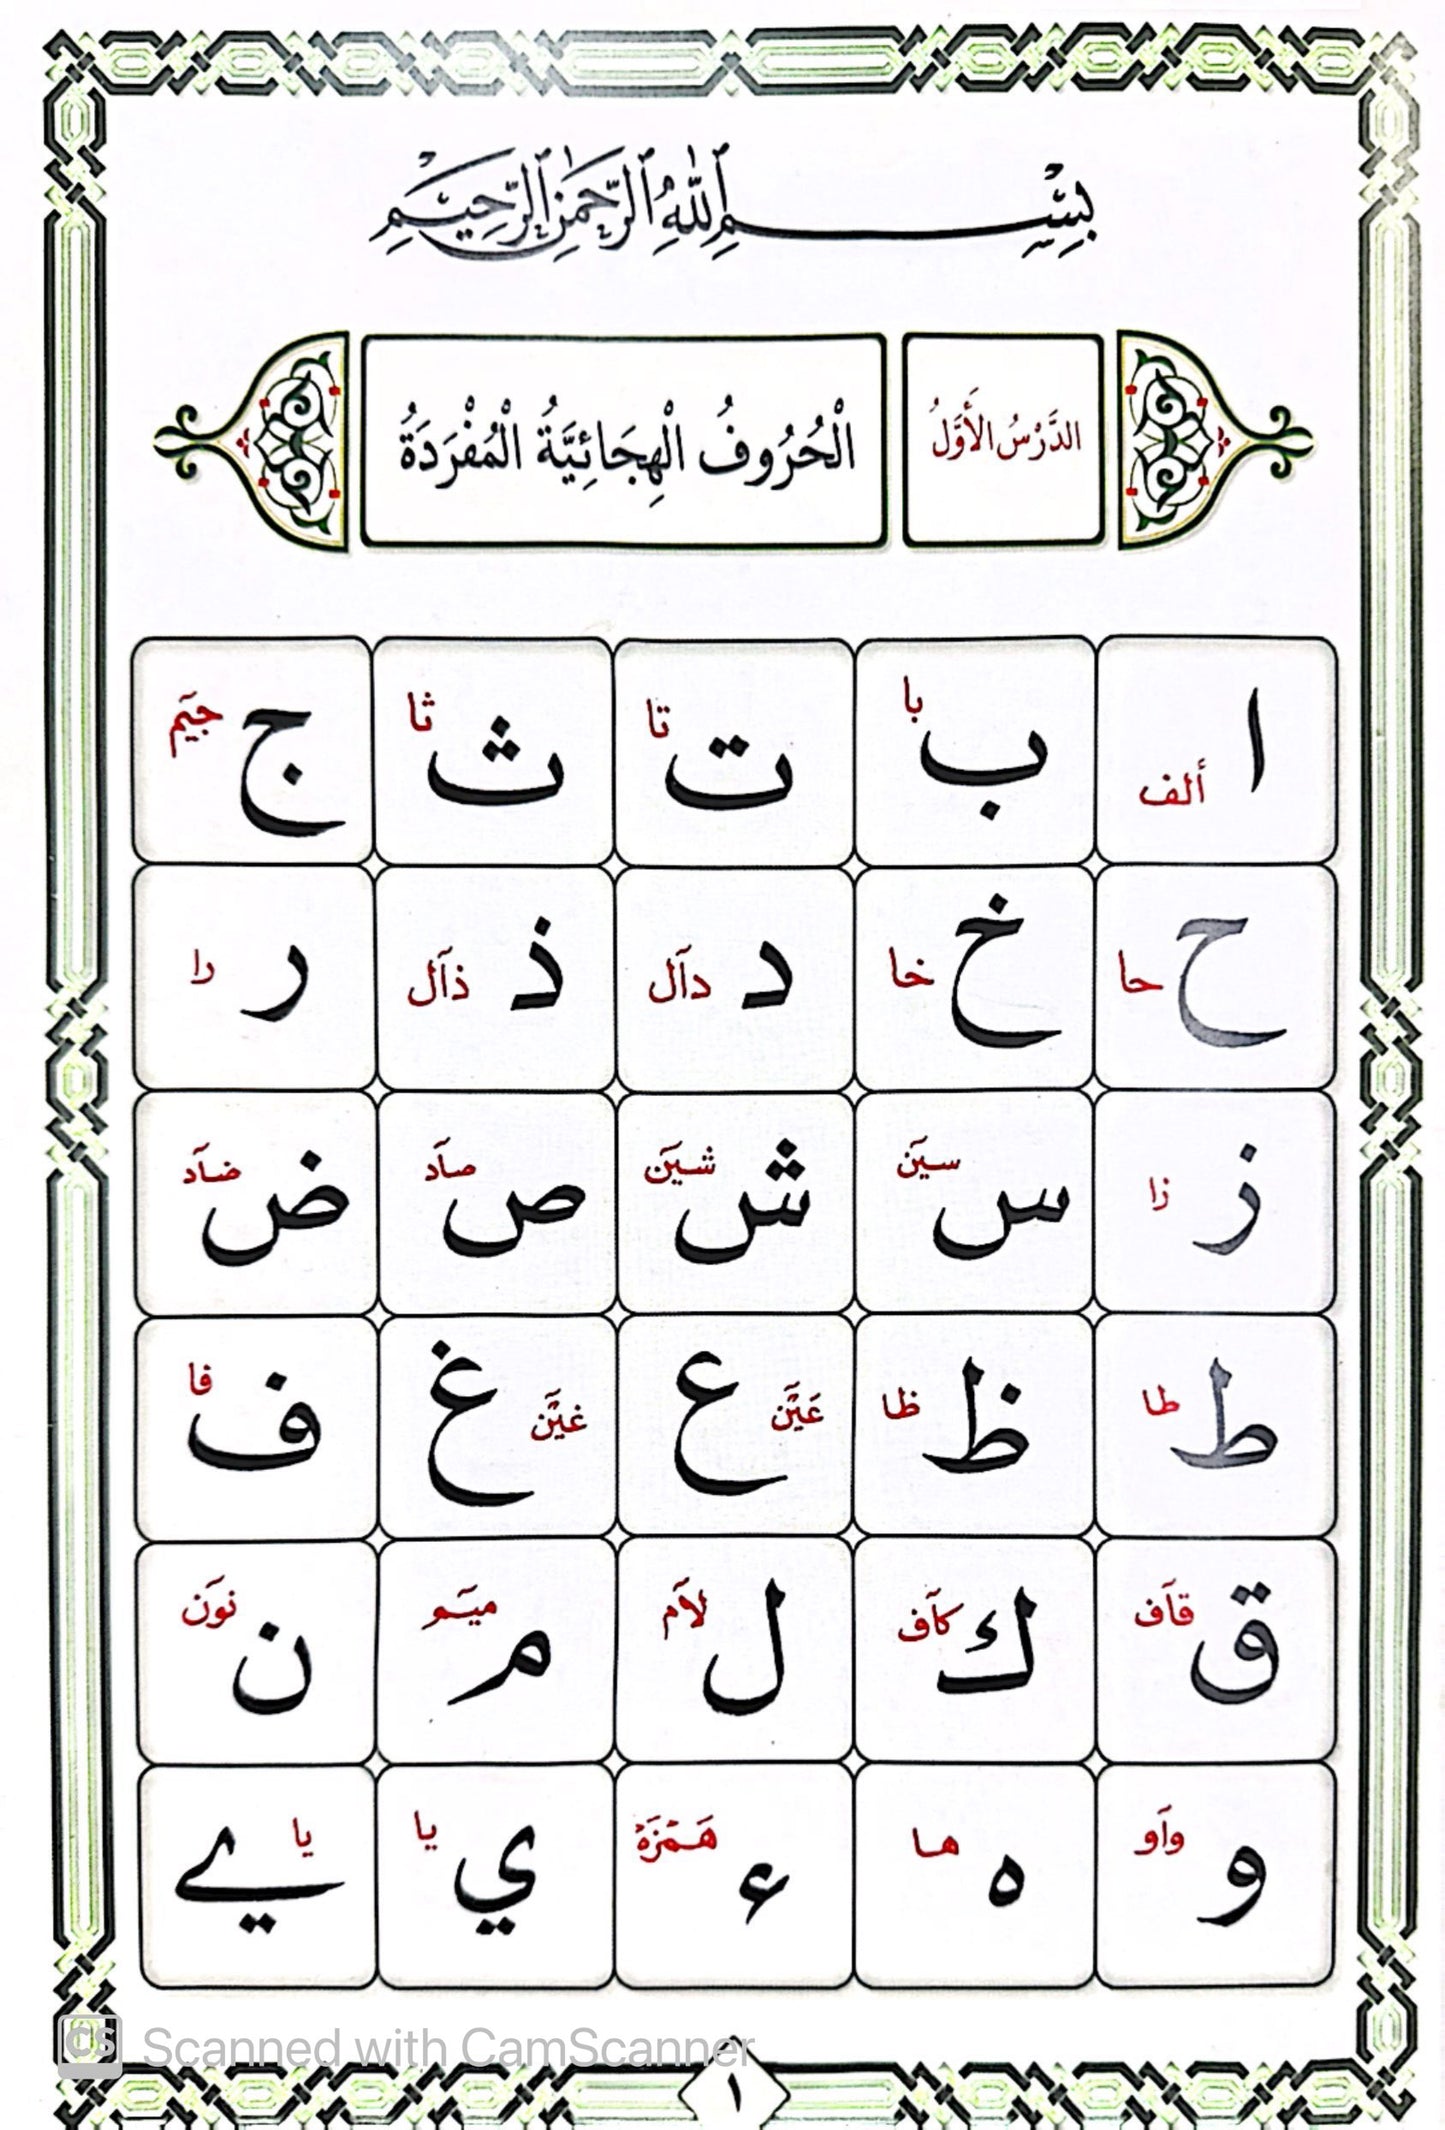 بِسْمِ ٱللَّهِ ٱلرَّحْمَٰنِ ٱلرَّحِيمِ
الدَّرْسُ الْأَوَّلُ
الْحُرُوفُ الْهِجَائِيَّةُ الْمُفْرَدَةُ
ا ألف ب با ت تا ث ثا ج جيٓم
ح حا خ خا د دآل ذ ذآل ر را
ز زا س سيٓن ش شيٓن ص صآد ض ضآد
ط طا ظ ظا ع عَيْٓن غ غيْٓن ف فا
ق قآف ك كآف ل لآم م ميٓم ن نوٓن
و وآو ه ها ء هَمْزَةْ ي يا ے يا
CS Scanned with CamScanner
١